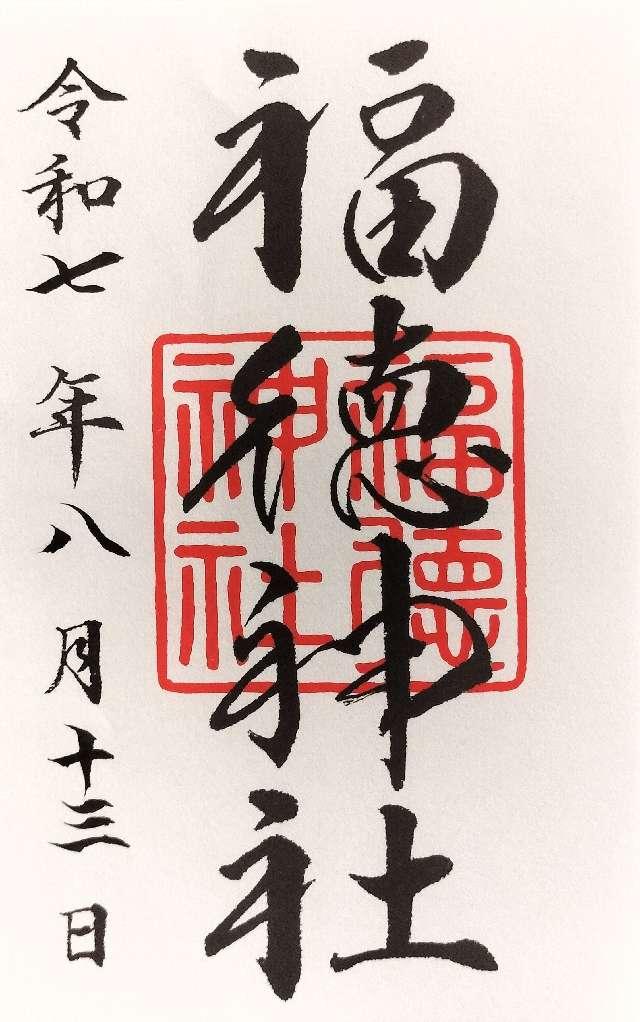 福徳神社
福徳
神社
令和七年八月十三日